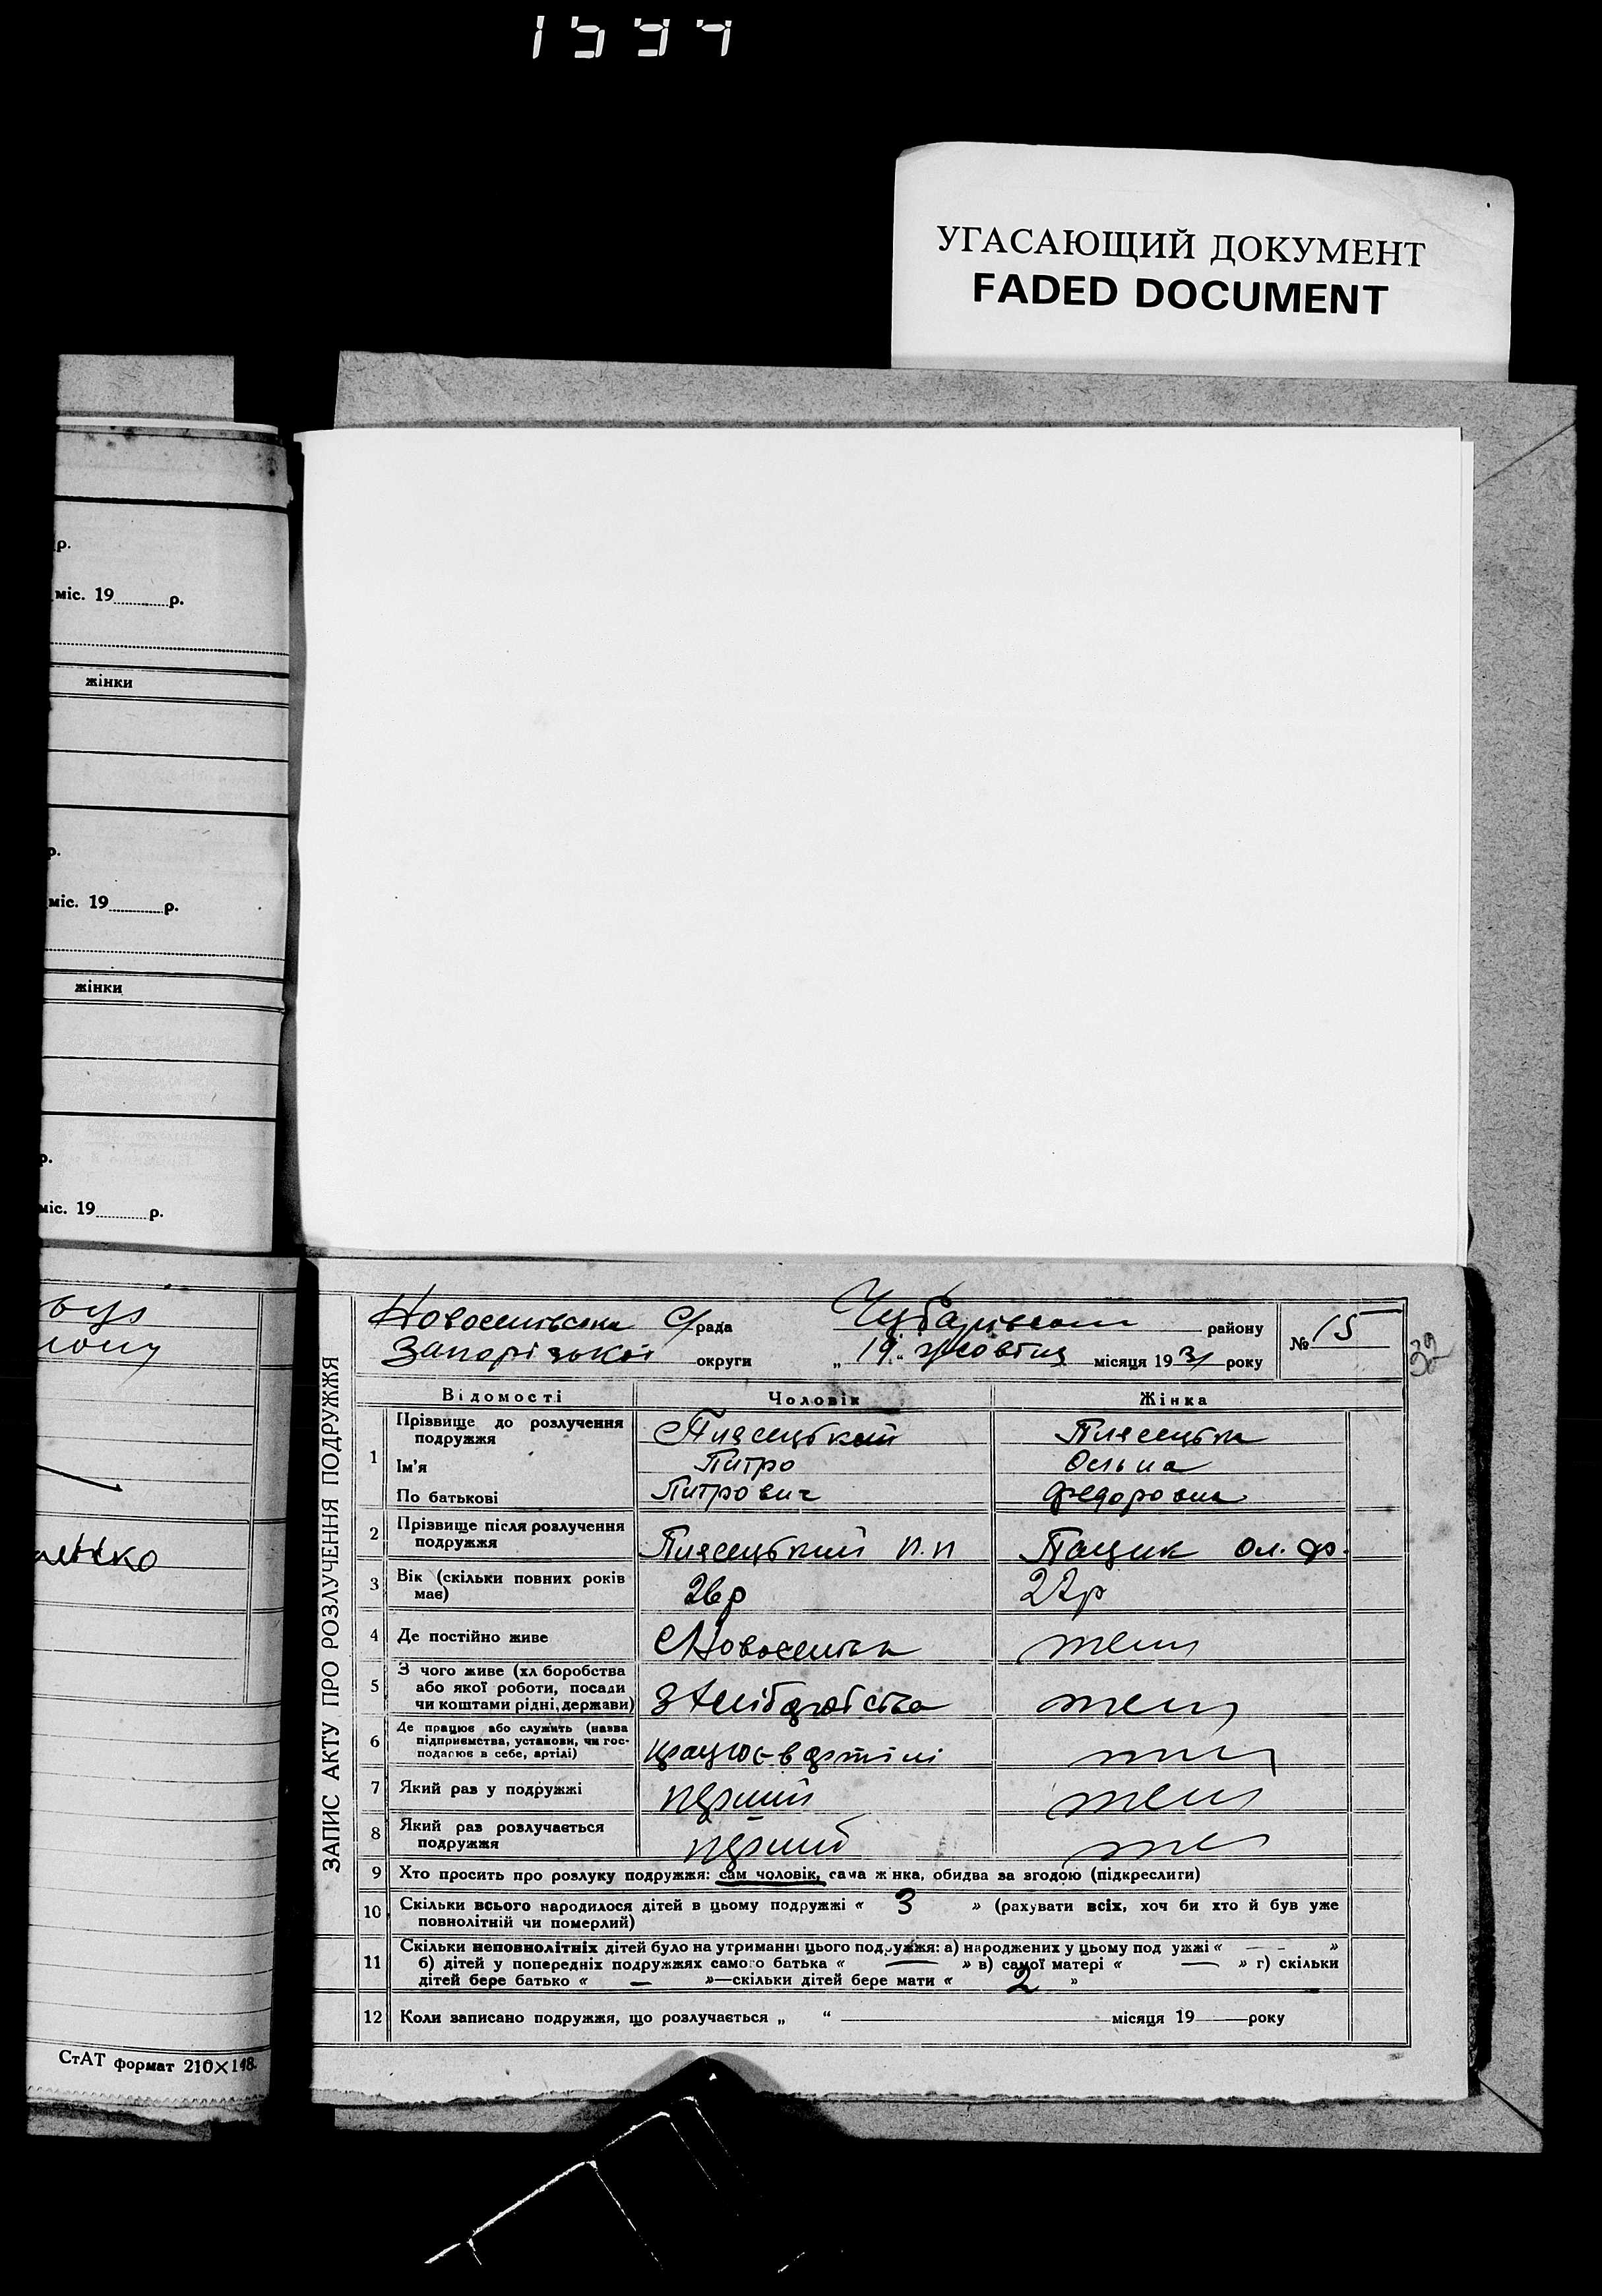 1594
УГАСАЮЩИЙ ДОКУМЕНТ
FADED DOCUMENT
р.
міс. 19 р.
жінки
р.
міс. 19 р.
жінки
р.
міс. 19 р.
СтАТ формат 210×148.
ЗАПИС АКТУ ПРО РОЗЛУЧЕННЯ ПОДРУЖЖЯ
Новоселівська С/рада Чубарівськ району № 15
Запорізької округи „ 19 “ жовтня місяця 1931 року
32
Відомості Чоловік Жінка
1 Прізвище до розлучення подружжя Плясецький Плясецька
Ім'я Питро Ольна
По батькові Питрович Федоровна
2 Прізвище після розлучення подружжя Плясецький П.П Пацик Ол. Ф.
3 Вік (скільки повних років має) 26р 22р
4 Де постійно живе Новоселівка теж
5 З чого живе (хл боробства або якої роботи, посади чи коштами рідні, держави) З хлібороб теж
6 Де працює або служить (назва підприємства, установи, чи господарює в себе, артілі) працює в артілі
7 Який раз у подружжі перший теж
8 Який раз розлучається подружжя перший
9 Хто просить про розлуку подружжя: сам чоловік, сама ж нка, обидва за згодою (підкреслити)
10 Скільки всього народилося дітей в цьому подружжі « 3 » (рахувати всіх, хоч би хто й був уже
повнолітній чи померлий)
11 Скільки неповнолітніх дітей було на утриманні цього подружжя: а) народжених у цьому под ужжі « — »
б) дітей у попередніх подружжях самого батька « — » в) самої матері « — » г) скільки
дітей бере батько « — »—скільки дітей бере мати « 2 »
12 Коли записано подружжя, що розлучається „ “ місяця 19 року